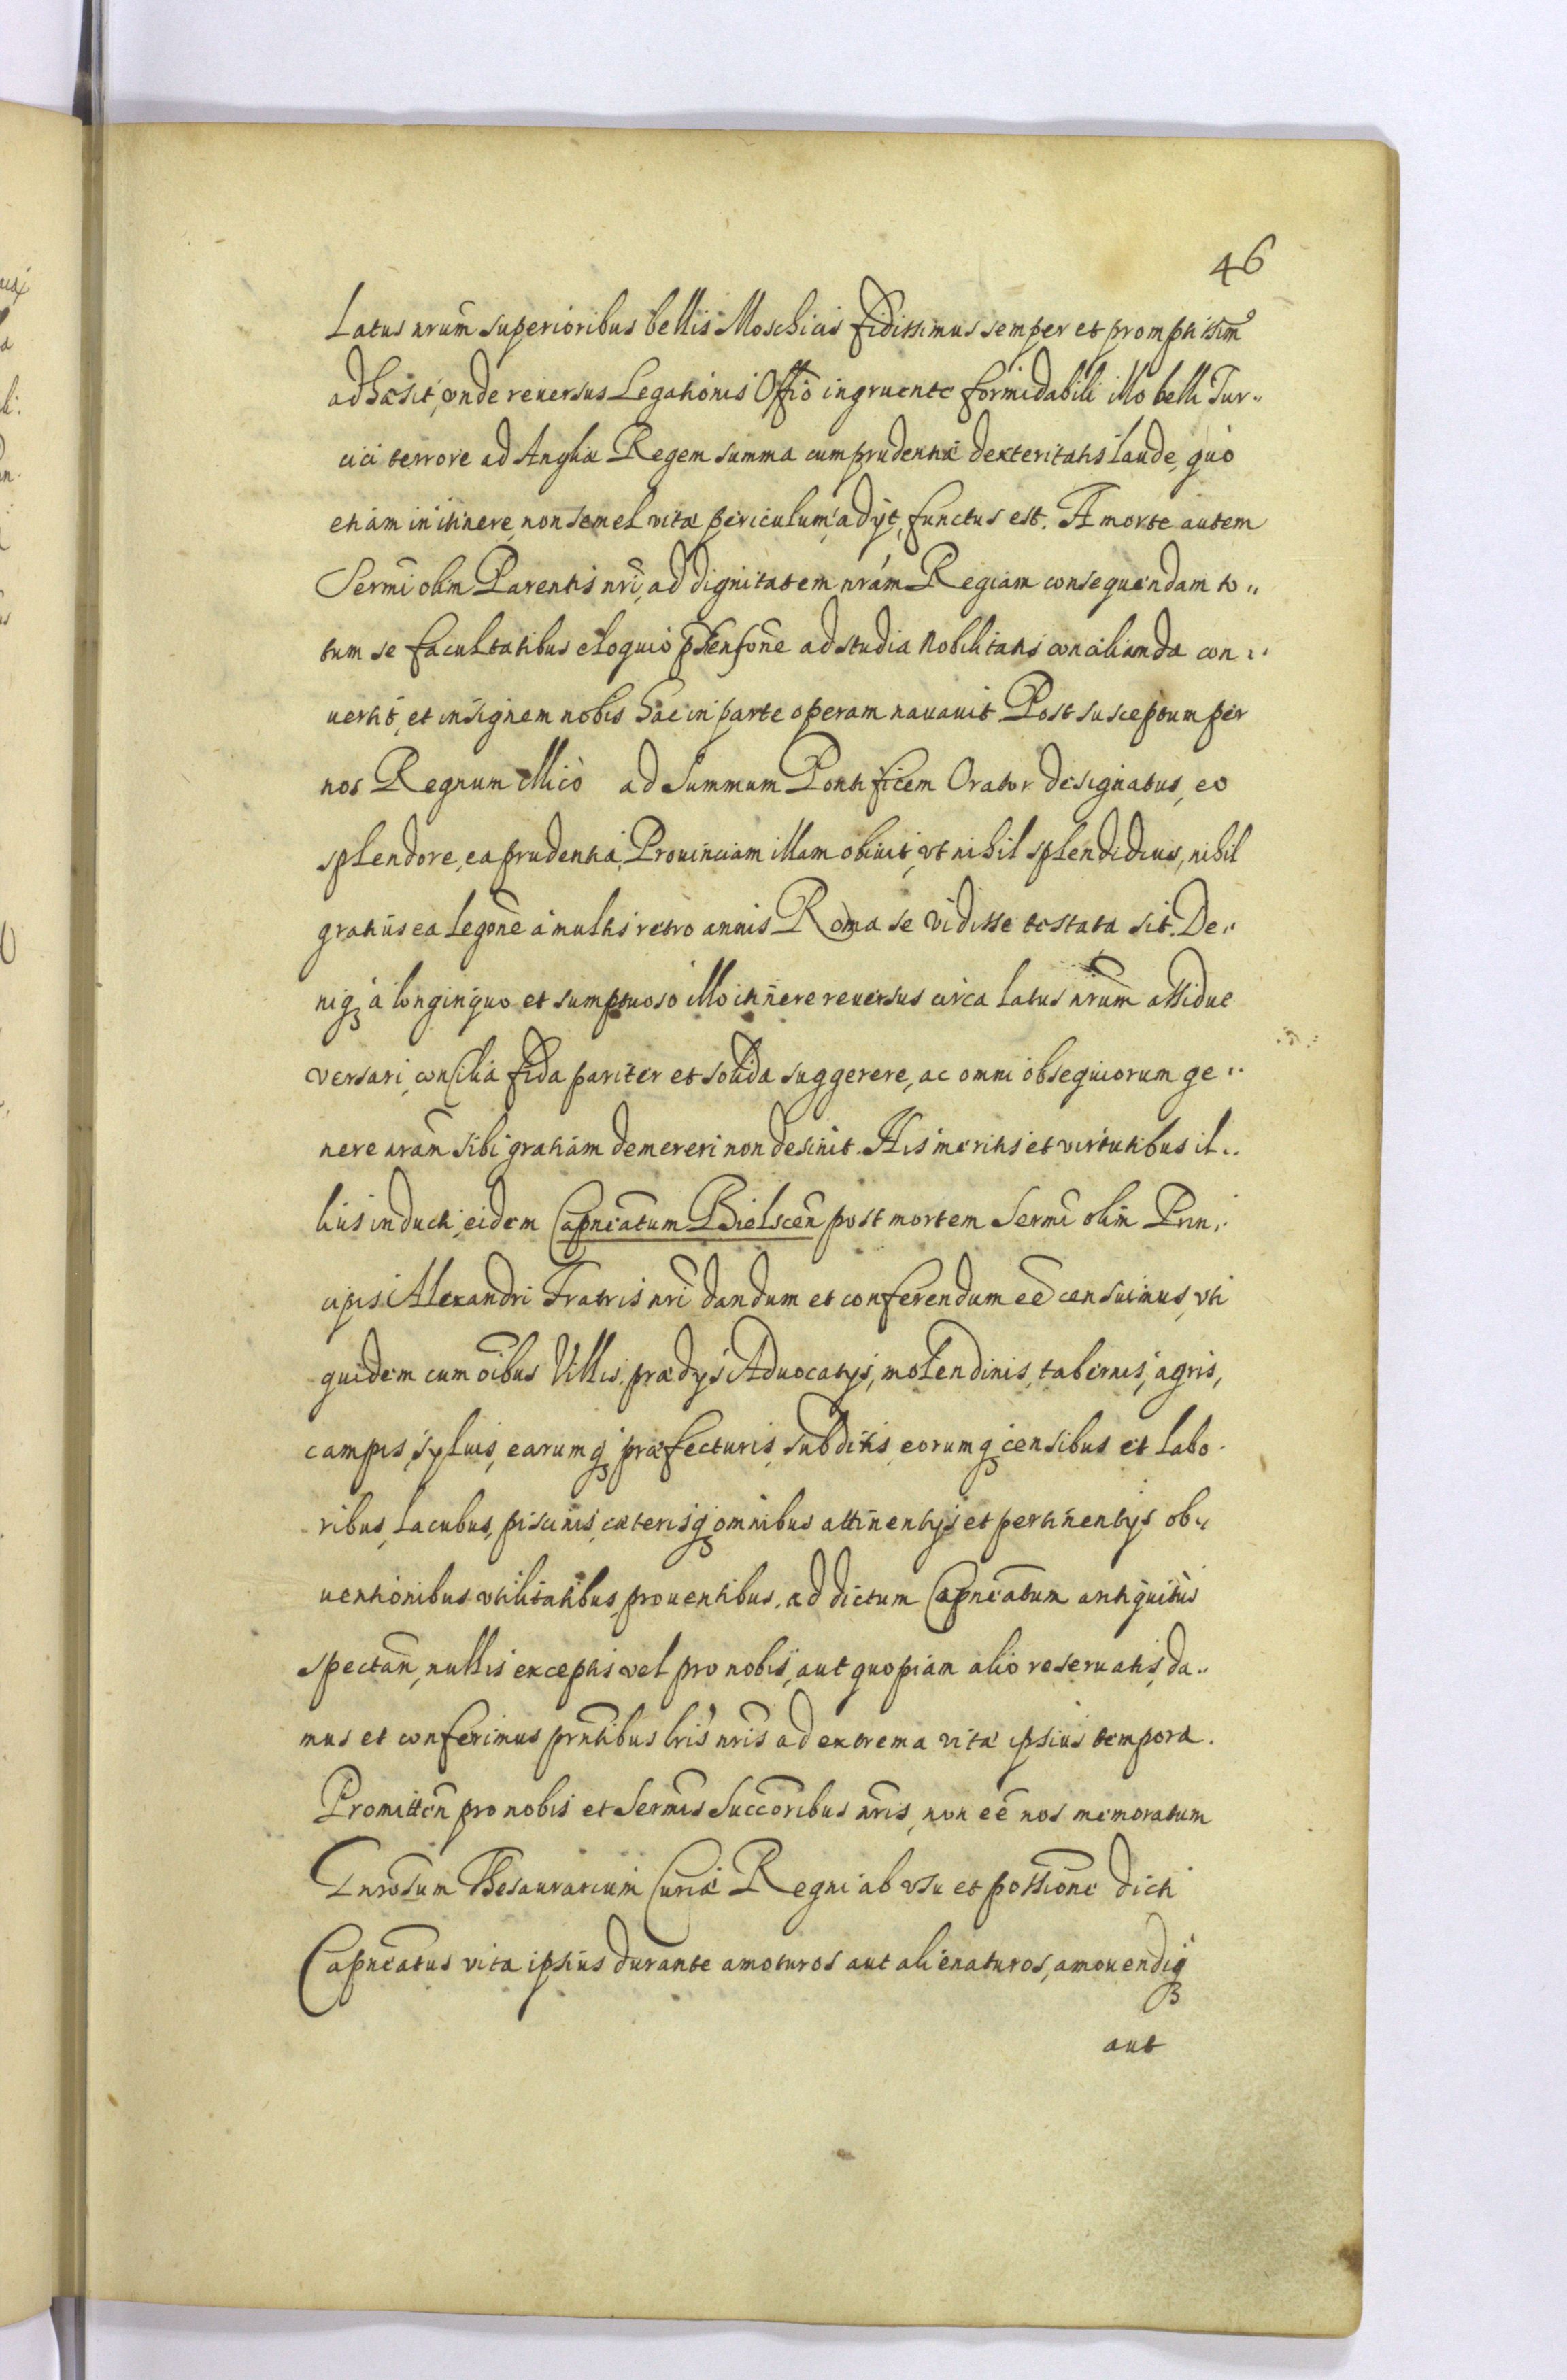 46
Latus nrũm superioribus bellis Moschicis fidissimus semper et promptissim9
adhæsit, unde reuersus Legationis Offiõ ingruente formidabili illo belli Tur„
cici terrore ad Angliæ Regem summa cum prudentiæ dexteritatis laude, quo
etiam in itinere, non semel vitæ periculum, adijt, functus est. A morte autem
Sermĩ olim Parentis nrĩ, ad dignitatem nrám Regiam consequendam to„
tum se facultatibus eloquio p̃senfõne ad studia Nobilitatis concilianda con„
uertit, et insignem nobis hac in parte operam nauauit. Post susceptum per
nos Regnum illicò ad Summum Pontificem Orator designatus, eo
splendore, ea prudentia, Prouinciam illam obiuit, vt nihil splendidius, nihil
gratius ea Legõne à multis retro annis Roma se vidisse testata sit. De„
niq3 à longinquo et sumptuoso illo itinere reuersus circa latus nrũm assidue
versari, consilia fida pariter et solida suggerere, ac omni obsequiorum ge„
nere nrãm sibi gratiam demereri non desinit. His meritis et virtutibus il„
lius inducti, eidem Capneãtum Bielscen̄ post mortem Sermĩ olim Prin„
cipis Alexandri Fratris nrĩ dandum et conferendum eẽ censuimus, vti
quidem cum oĩbus Villis, prædijs Aduocatijs, molendinis, tabernis, agris,
campis, syluis, earumq3 præfecturis, subditis, eorumq3 censibus et labo„
ribus, Lacubus, piscinis, cæterisq3 omnibus attinentijs et pertinentijs ob„
uentionibus vtilitatibus, prouentibus, ad dictum Capneãtum antiquitùs
spectan̄, nullis exceptis vel pro nobis, aut quopiam alio reseruatis, da„
mus et conferimus prñtibus lrĩs nrĩs ad extrema vitæ ipsius tempora.
Promitten̄ pro nobis et Sermĩs Succõribus nrĩs, non eẽ nos memoratum
Gnrõsum Thesaurarium Curiæ Regni ab vsu et possiõne dicti
Capneãtus vita ipsius durante amoturos aut alienaturos, amouendiq3
aut